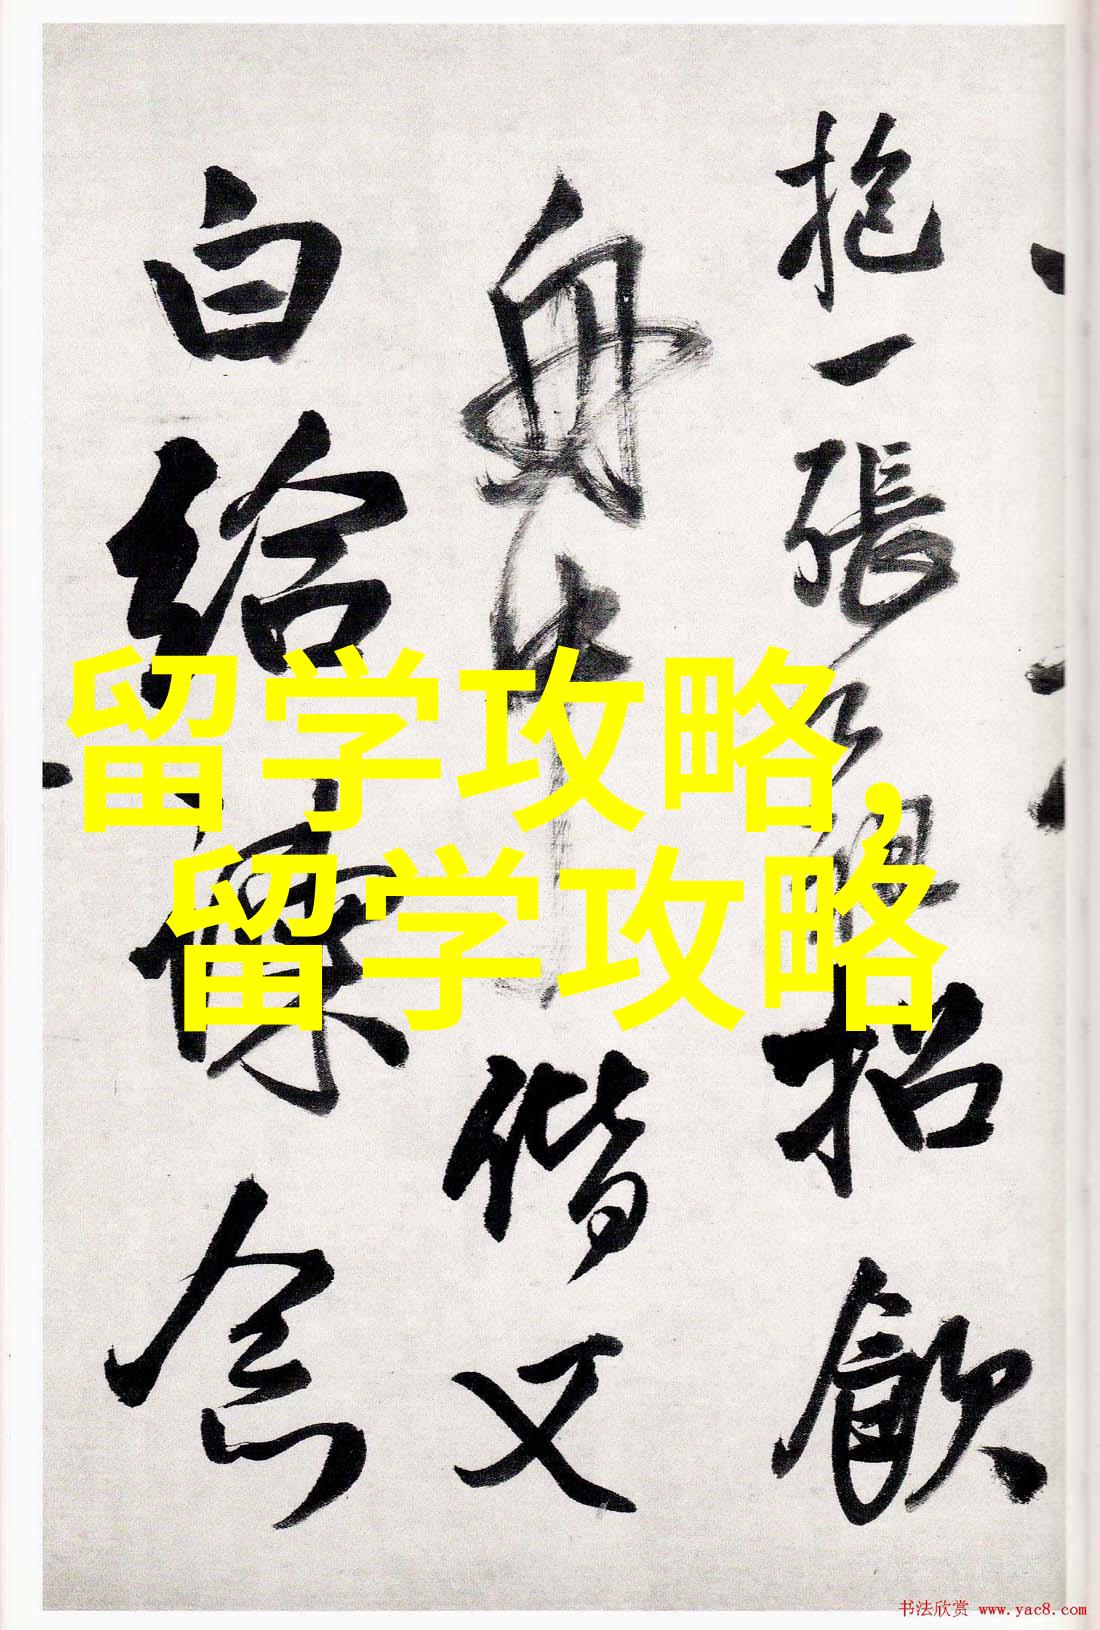 抱一張招飲
舟中偕又
白給
留学攻略,
留学攻略
书法欣赏 www.yac8.com